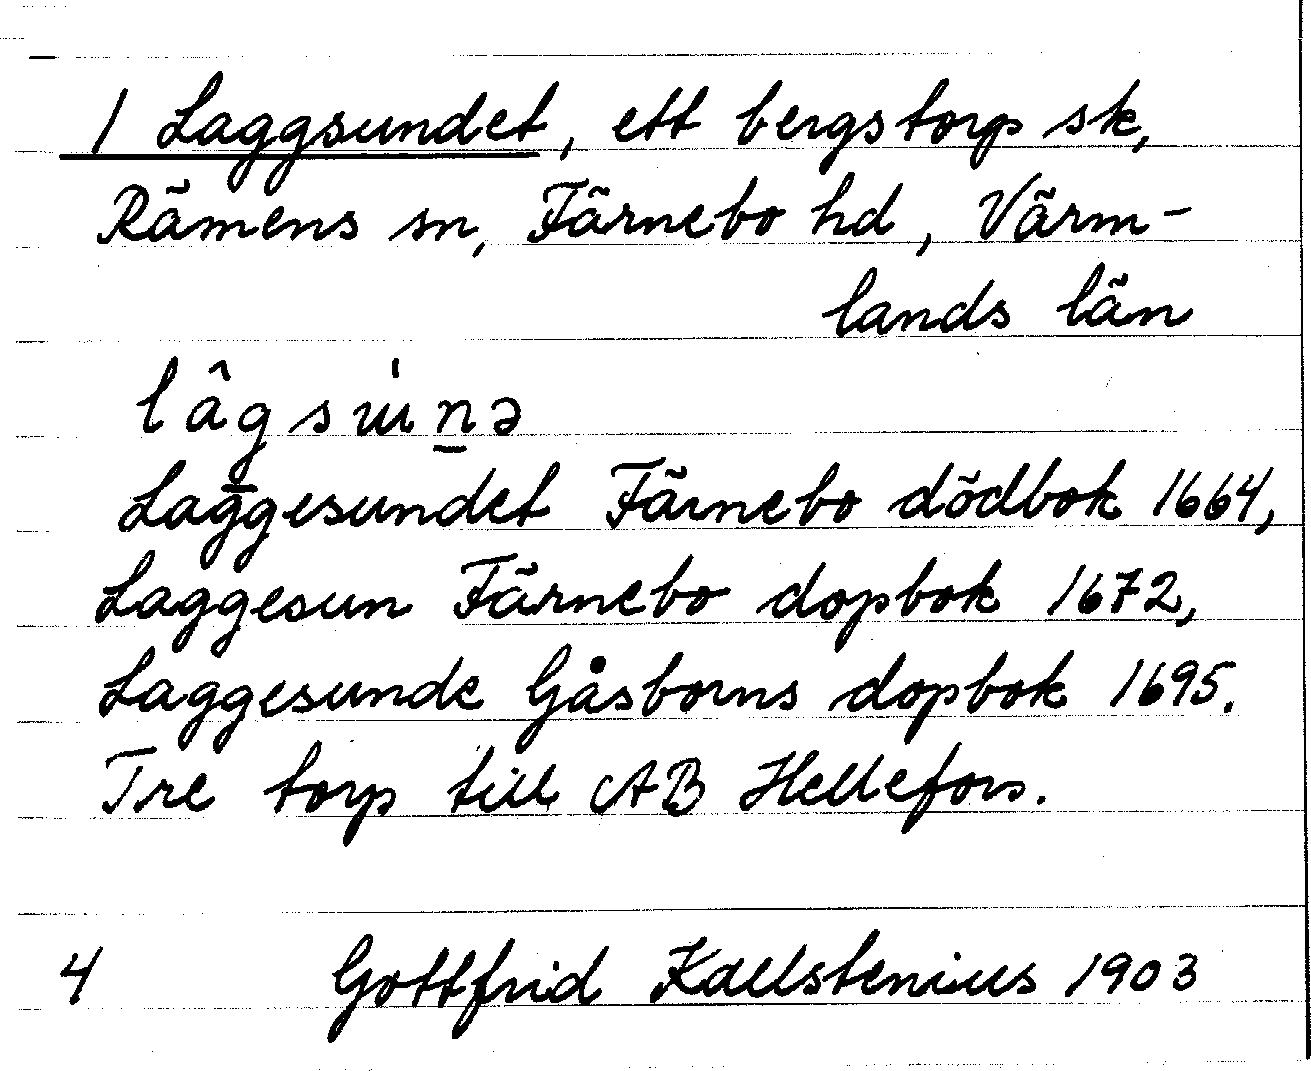 1 Laggsundet, ett bergstorp sk,
Rämens sn, Färnebo hd, Värm-
lands län
lâgsɯ̍n̲ə
Laggesundet Färnebo dödbok 1664,
Laggesun Färnebo dopbok 1672,
Laggesunde Gåsborns dopbok 1695.
Tre torp till AB Hellefors.
4 Gottfrid Kallstenius 1903